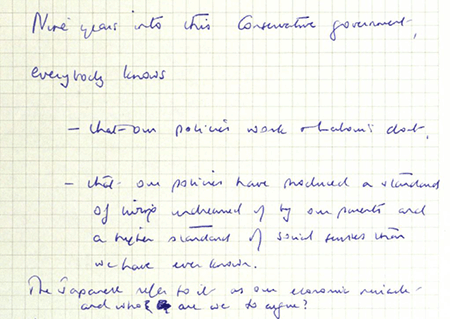 Nine years into this Conservative government,
everybody knows
- that our policies work & Labour's don't,
- that our policies have produced a standard
of living undreamed of by our parents and
a higher standard of social services than
we have ever known.
The Japanese refer to it as our economic miracle -
and who are we to argue?